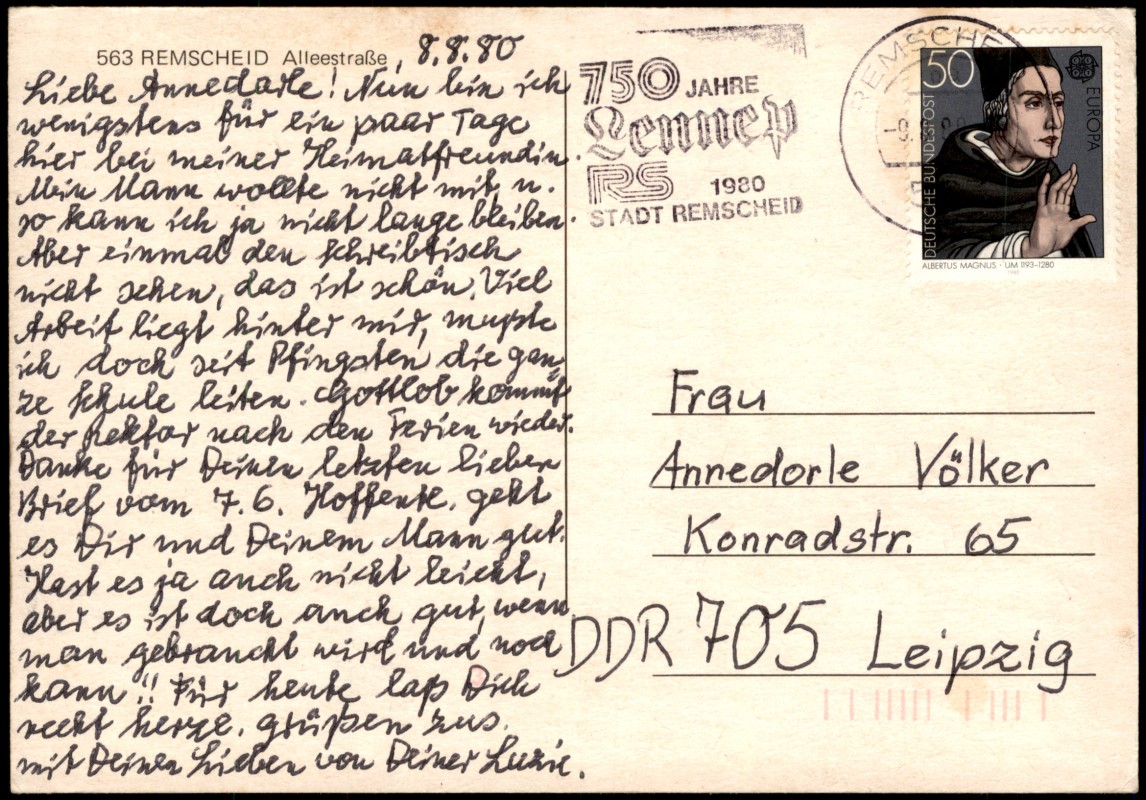 563 REMSCHEID Alleestraße, 8.8.80
Liebe Annedorle! Nun bin ich
wenigstens für ein paar Tage
hier bei meiner Heimatfreundin.
Mein Mann wollte nicht mit, u.
so kann ich ja nicht lange bleiben.
Aber einmal den Schreibtisch
nicht sehen, das ist schön. Viel
Arbeit liegt hinter mir, mußte
ich doch seit Pfingsten die gan=
ze Schule leiten. Gottlob kommt
der Rektor nach den Ferien wieder.
Danke für Deinen letzten lieben
Brief vom 7.6. Hoffentl. geht
es Dir und Deinem Mann gut.
Hast es ja auch nicht leicht,
aber es ist doch auch gut, wenn
man gebraucht wird und noch
kann!! Für heute laß Dich
recht herzl. grüßen zus.
mit Deinen Lieben von Deiner Luzie.
750 JAHRE
Lennep
RS 1980
STADT REMSCHEID
REMSCHE
50
EUROPA
DEUTSCHE BUNDESPOST
ALBERTUS MAGNUS · UM 1193-1280
Frau
Annedorle Völker
Konradstr. 65
DDR 705 Leipzig